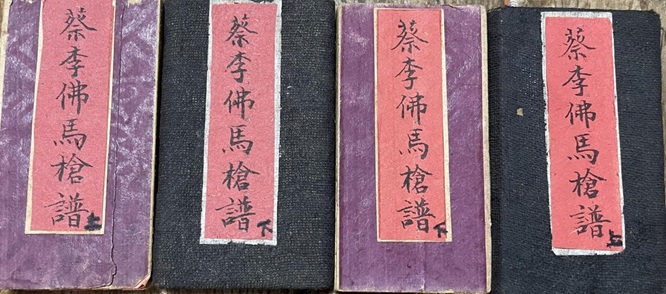 蔡李佛馬槍譜上
蔡李佛馬槍譜下
蔡李佛馬槍譜下
蔡李佛馬槍譜上